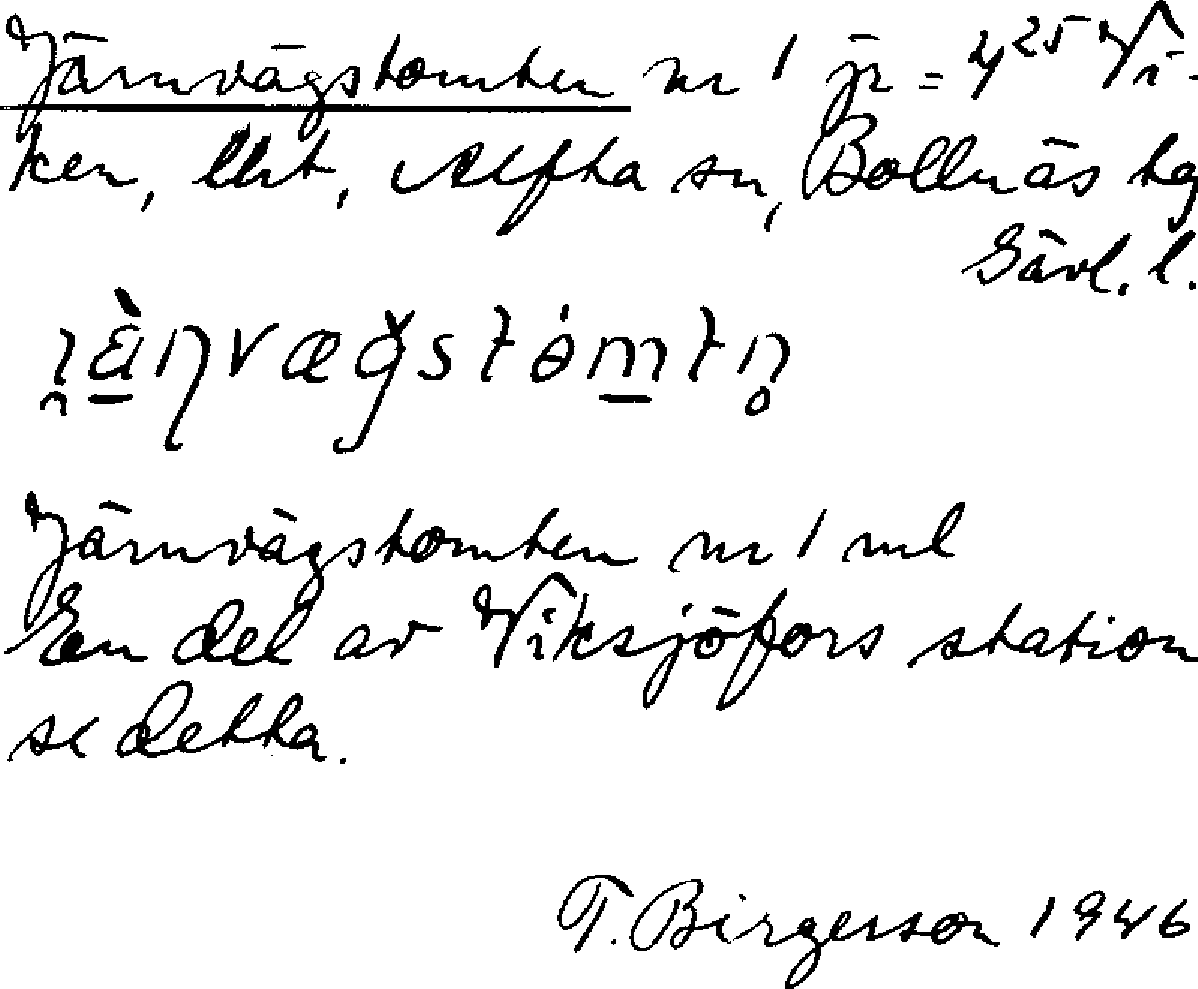 Järnvägstomten nr 1 jr = 4²⁵ Vi-
ken, lht, Alfta sn, Bollnäs tg
Gävl. l.
Järnvägstomten nr 1 ml
En del av Viksjöfors station
se detta.
T. Birgerson 1946